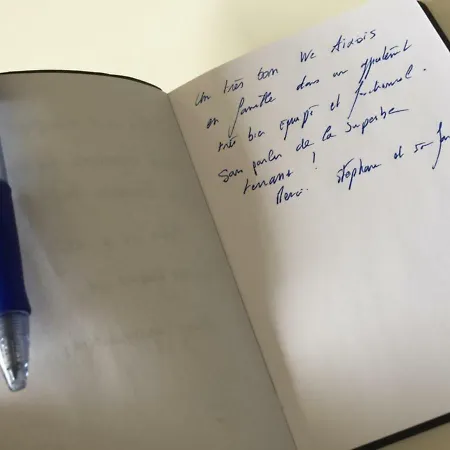 Un très bon We Aixois
en famille dans un appartement
très bien équipé et fonctionnel.
Sans parler de la superbe
terrasse !
Merci. Stéphane et sa